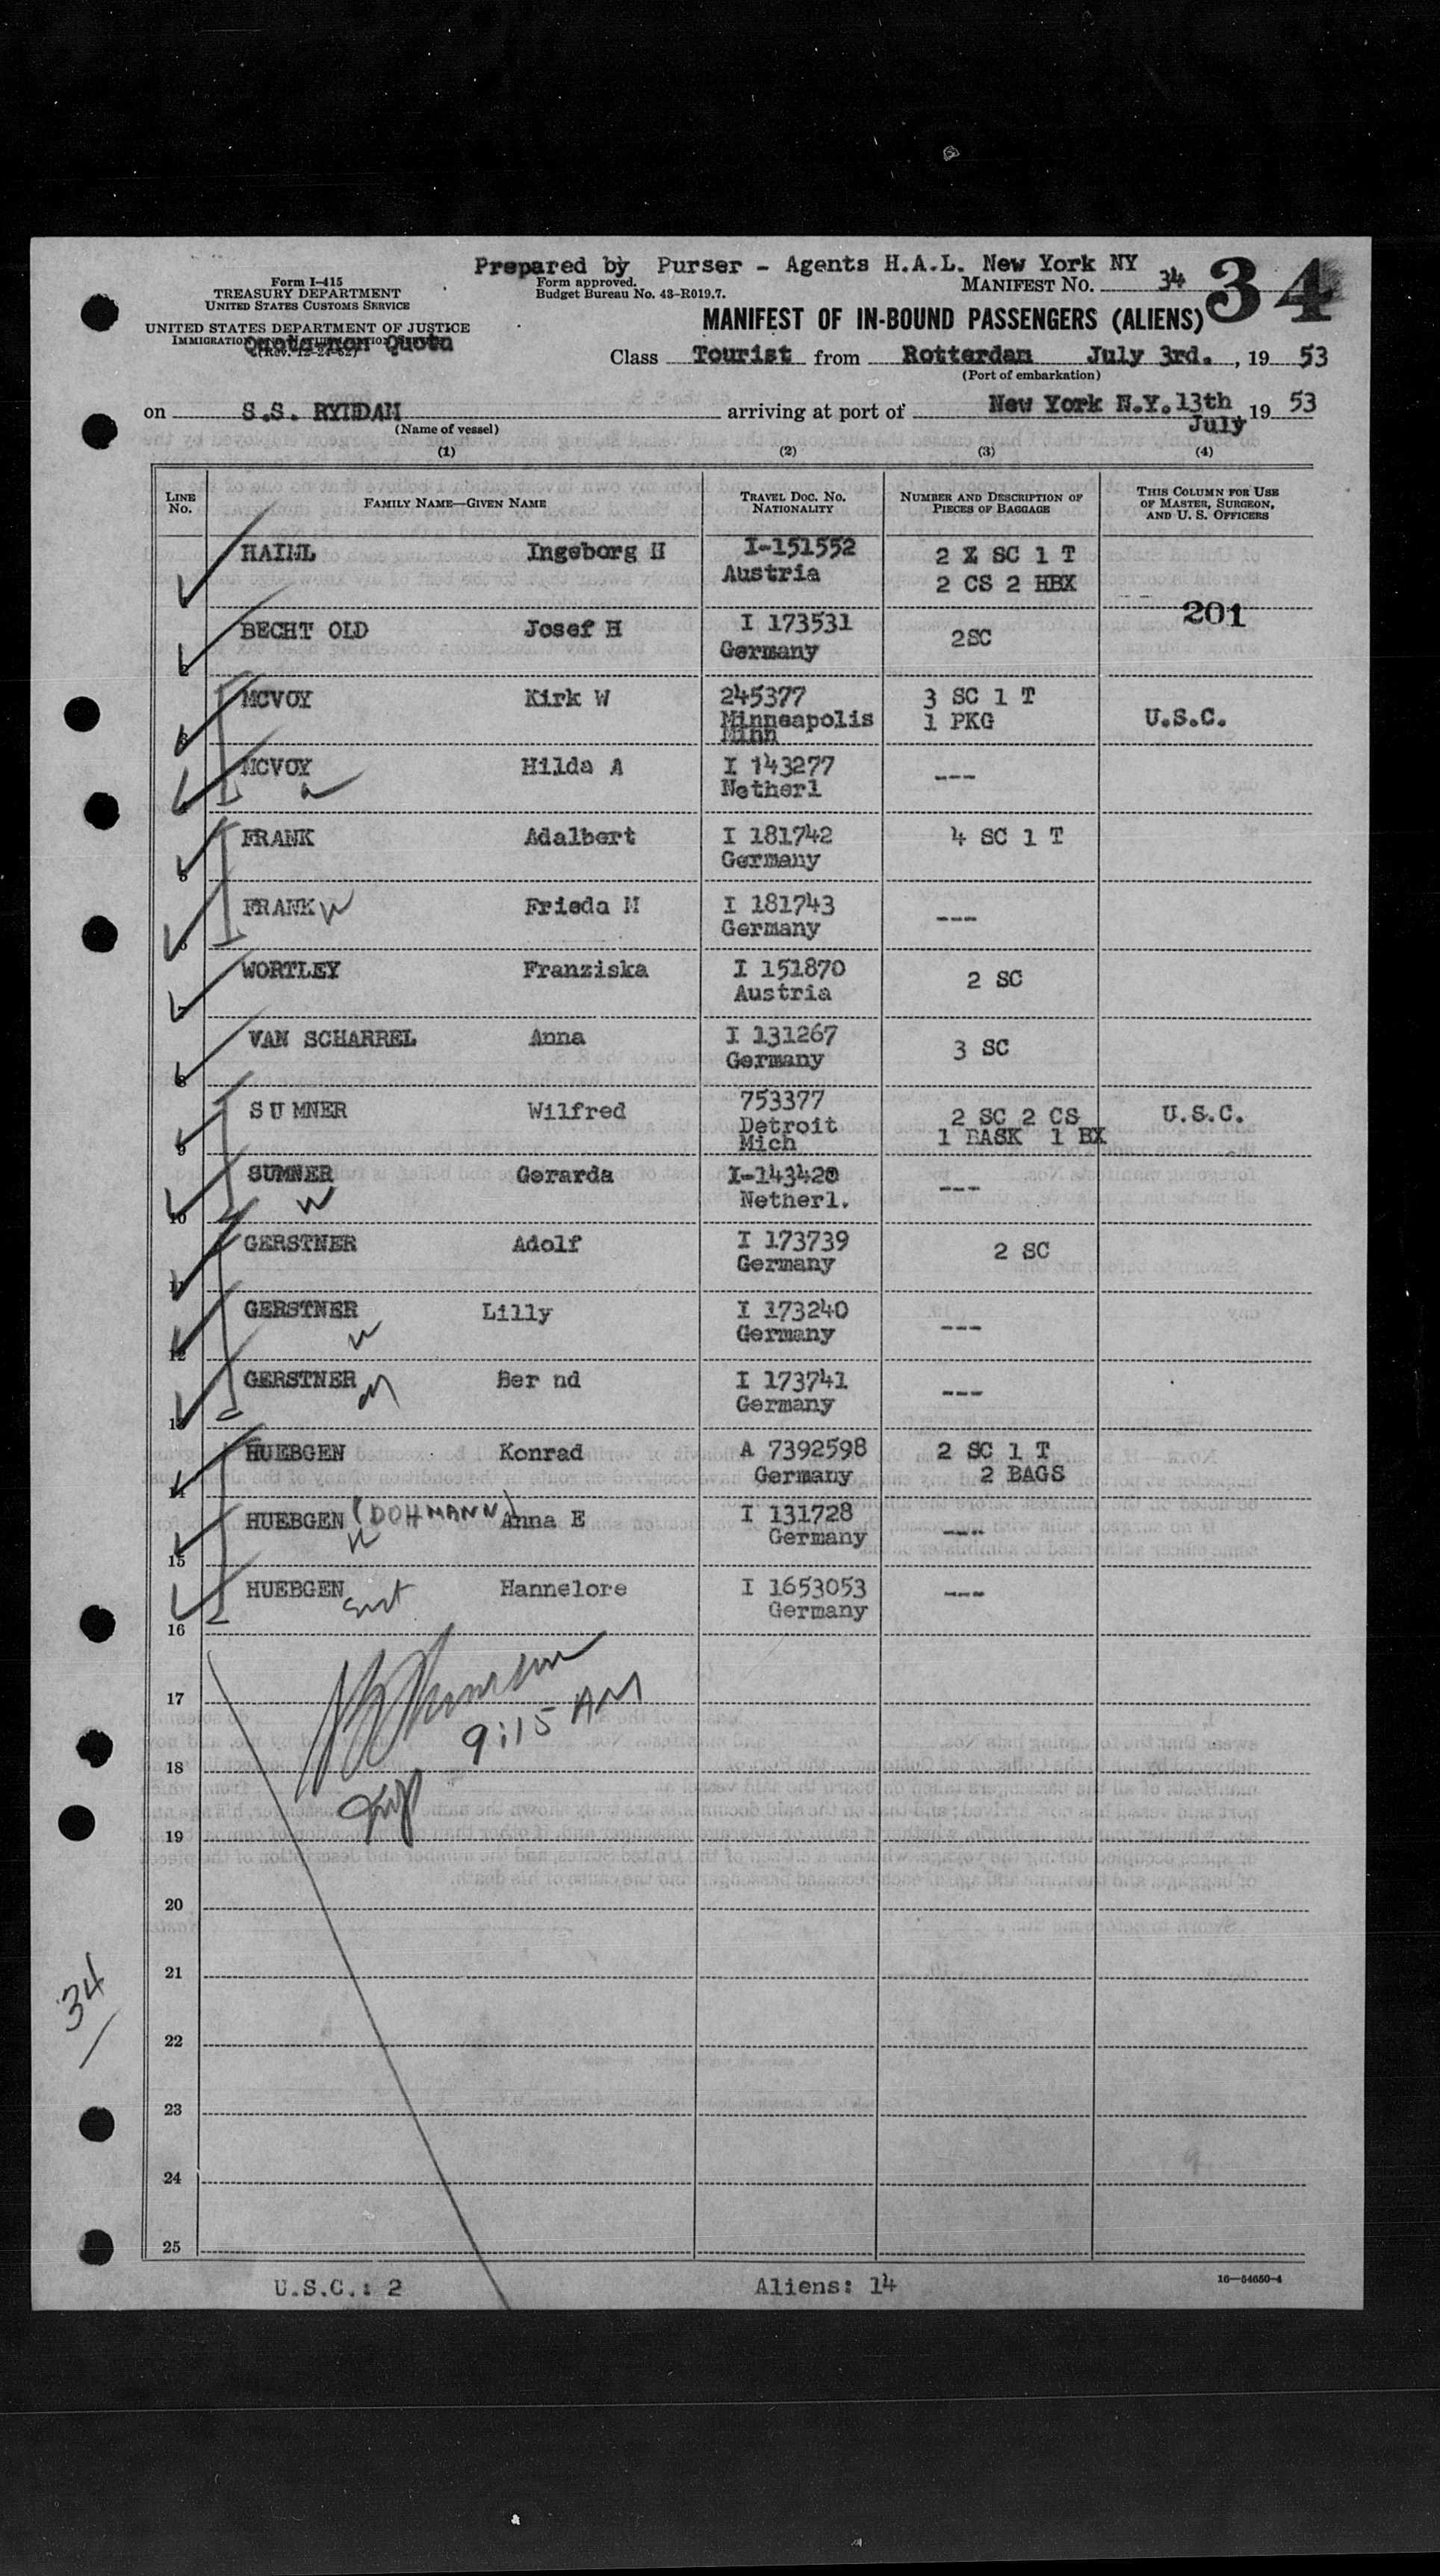 Prepared by Purser - Agents H.A.L. New York NY
Form I-415
TREASURY DEPARTMENT
UNITED STATES CUSTOMS SERVICE
Form approved.
Budget Bureau No. 43-R019.7.
MANIFEST No. 34
34
UNITED STATES DEPARTMENT OF JUSTICE
MANIFEST OF IN-BOUND PASSENGERS (ALIENS)
Quota-non Quota
Class Tourist from Rotterdam July 3rd., 1953
(Port of embarkation)
on S.S. RYNDAM arriving at port of New York N.Y. 13th July 1953
(Name of vessel)
(1) (2) (3) (4)
LINE No. FAMILY NAME—GIVEN NAME TRAVEL DOC. No. NATIONALITY NUMBER AND DESCRIPTION OF PIECES OF BAGGAGE THIS COLUMN FOR USE OF MASTER, SURGEON, AND U. S. OFFICERS
Ingeborg H I-151552 2 X SC 1 T
Austria 2 CS 2 HBX
201
BECHT OLD Josef H I 173531 2SC
Germany
MCVOY Kirk W 245377 3 SC 1 T
Minneapolis 1 PKG U.S.C.
Minn
MCVOY Hilda A I 143277 ---
Netherl
FRANK Adalbert I 181742 4 SC 1 T
5 Germany
FRANK W Frieda M I 181743 ---
6 Germany
WORTLEY Franziska I 151870 2 SC
7 Austria
VAN SCHARREL Anna I 131267 3 SC
8 Germany
SUMNER Wilfred 753377 2 SC 2 CS U.S.C.
9 Detroit 1 BASK 1 BX
Mich
SUMNER Gerarda I-143420 ---
10 W Netherl.
GERSTNER Adolf I 173739 2 SC
11 Germany
GERSTNER Lilly I 173240 ---
12 W Germany
GERSTNER Ber nd I 173741 ---
13 Germany
HUEBGEN Konrad A 7392598 2 SC 1 T
14 Germany 2 BAGS
HUEBGEN (DOHMANN) Anna E I 131728 ---
15 W Germany
HUEBGEN Hannelore I 1653053 ---
16 Germany
17
9:15 AM
18
19
20
21
34
22
23
24
25
U.S.C.: 2 Aliens: 14 16—54650-4